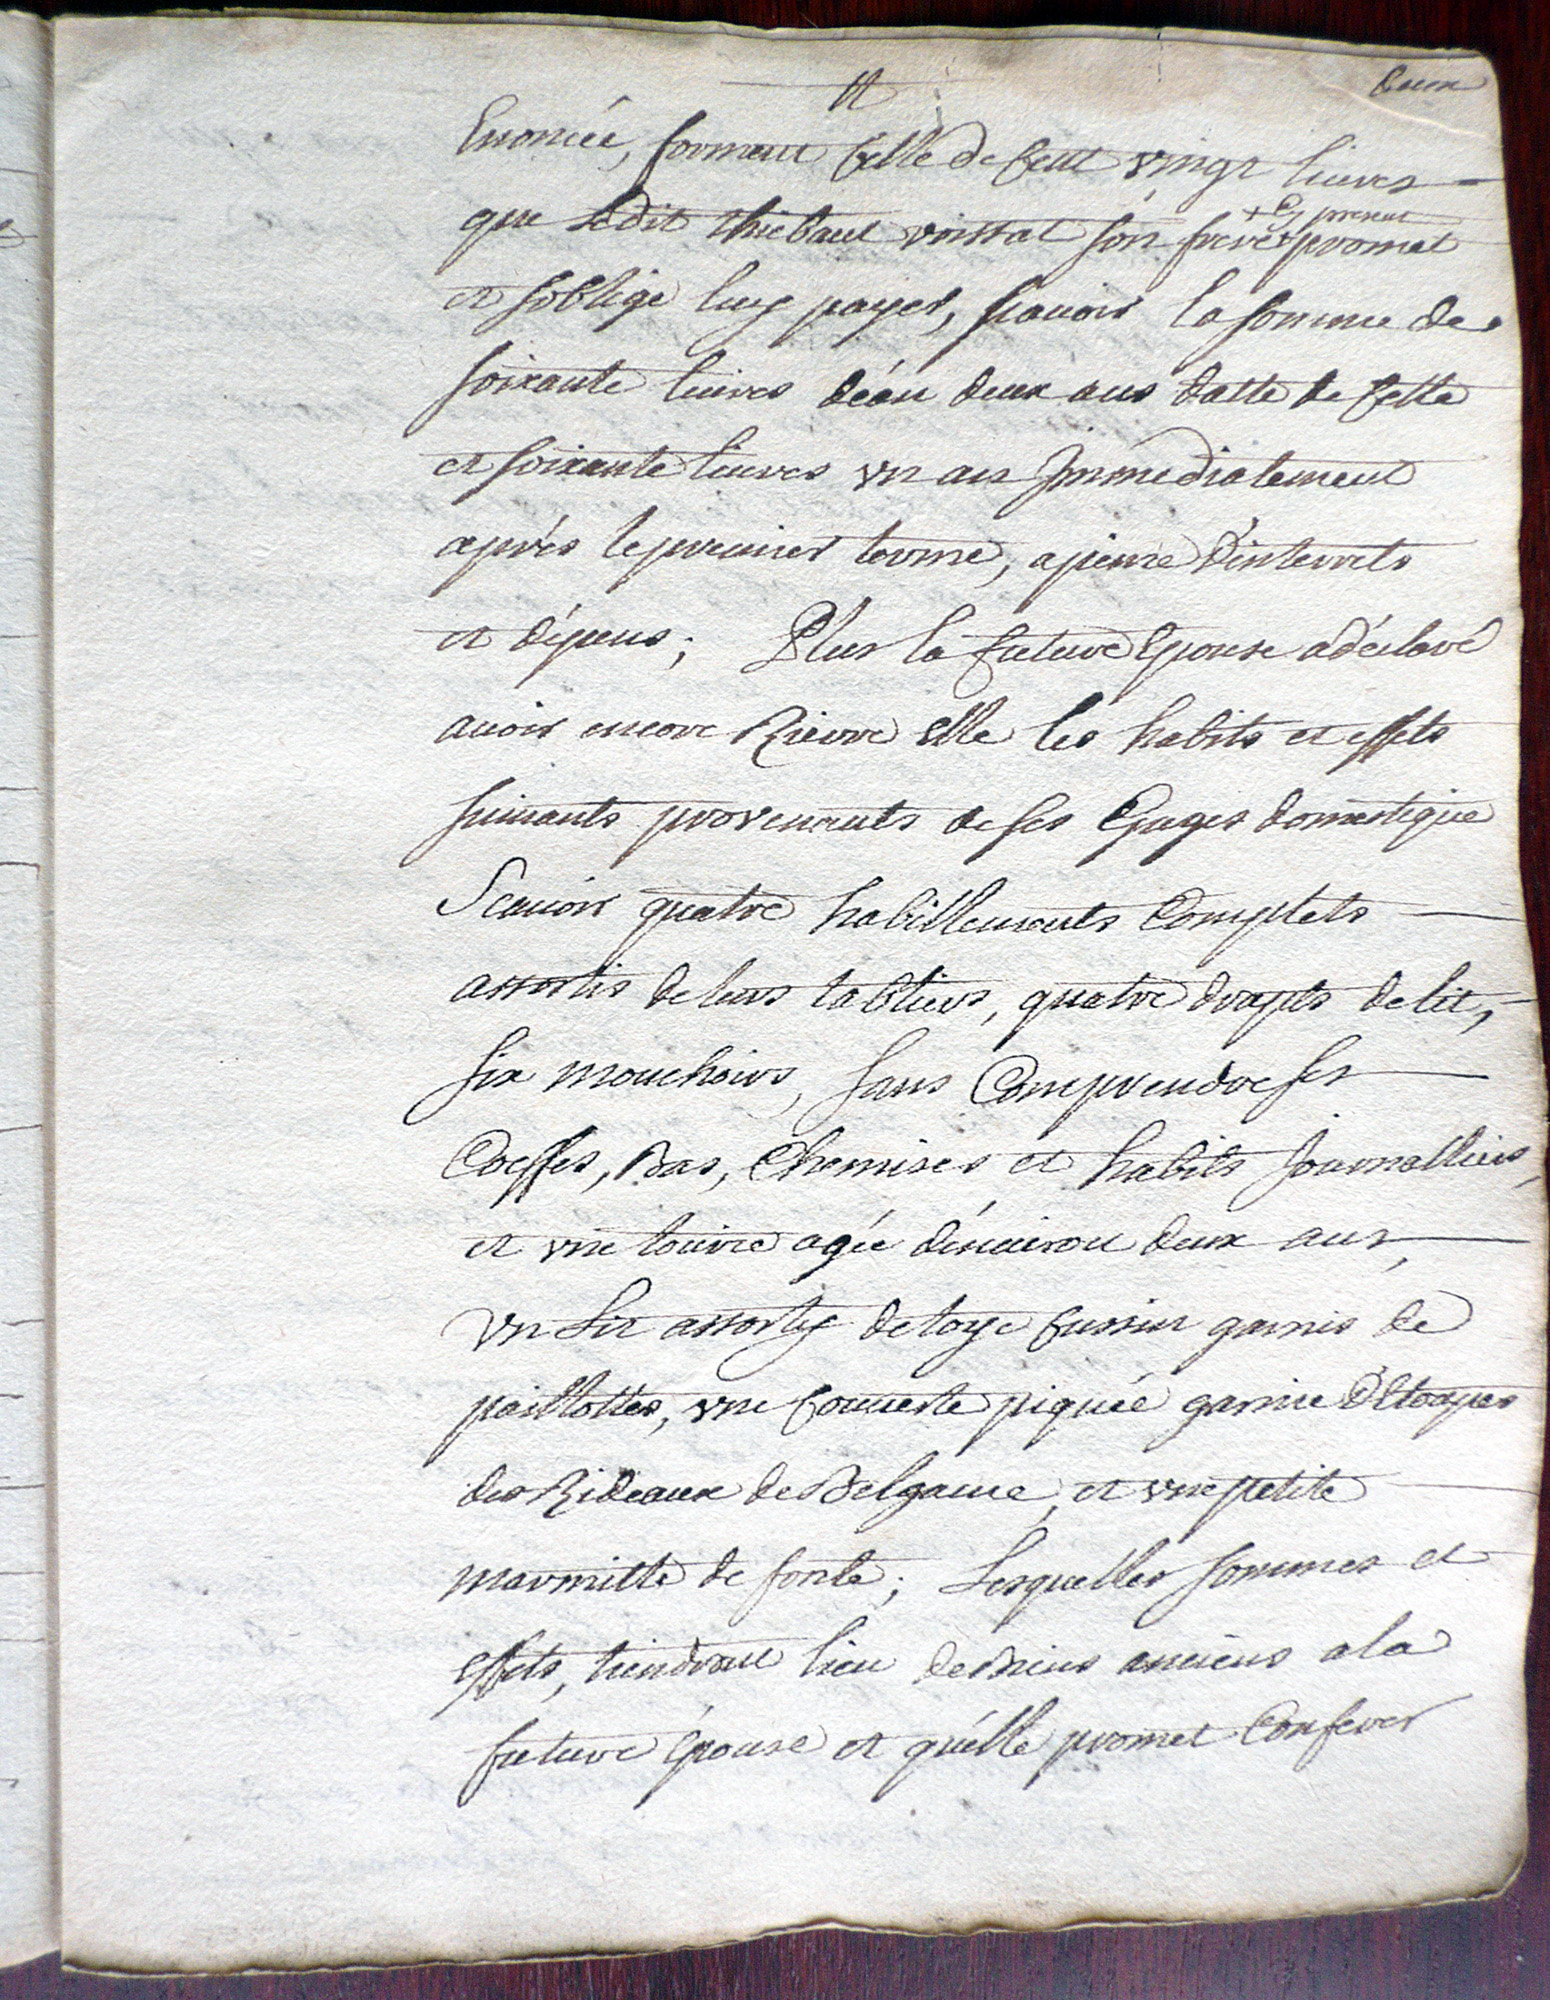 et
Enoncée, formant Celle de Cent vingt livres
+ Cy present
que ledit thiebaut voissat son frere + promet
et soblige luy payer, scavoir la somme de
soixante livres d'éan deux ans datte de Cette
et soixante livres vn an Jmmediatement
aprés le premier terme, apeine d'interrets
et dépens ; Plus la future Epouse a déclaré
avoir encore Rierre Elle les habits et effets
suivants provenants de ses Gages domestique
Scavoir quatre habillements Complets
assortis de leurs tabliers, quatre drapts de lit,
six mouchoirs, sans Comprendre ses
Coeffes, Bas, Chemises et habits Journalliers,
et vne touire agée d'énviron deux ans,
Vn Lit assorty de toye Cussin garnis de
paillottes, vne Couverte piquée garnie D'Etoupes
des Rideaux de Belgame, et vne petite
marmitte de fonte ; Lesquelles sommes et
Effets, tiendront lieu de Biens anciens a la
future Epouse et qu'élle promet Conferer